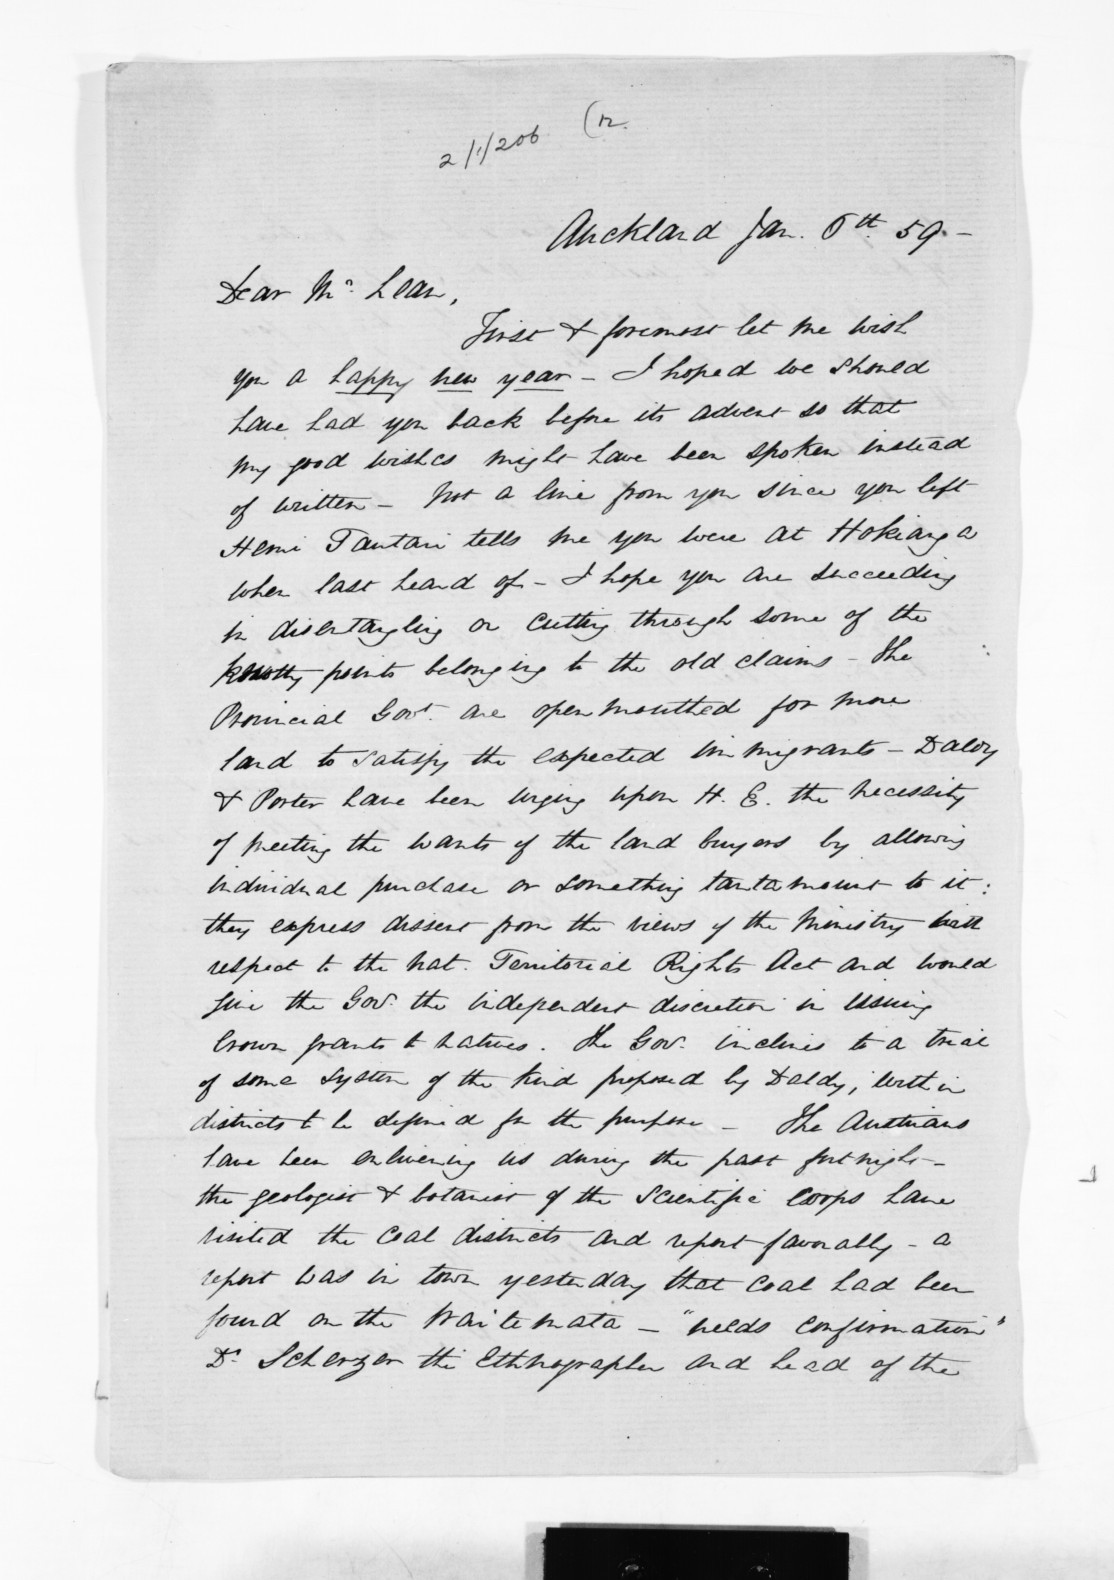 2/1/206 (12.
Auckland Jan. 6th. 59 -
Dear Mc. Lean,
First & foremost let me wish
you a happy new year - I hoped we should
have had you back before its advent so that
my good wishes might have been spoken instead
of written - Not a line from you since you left
Hemi Tautari tells me you were at Hokianga
when last heard of - I hope you are succeeding
in disentangling or cutting through some of the
knotty points belonging to the old claims - The
Provincial Govt. are open mouthed for more
land to satisfy the expected immigrants - Daldy
& Porter have been urging upon H. E. the necessity
of meeting the wants of the land buyers by allowing
individual purchase or something tantamount to it:
they express dissent from the views of the Ministry with
respect to the Nat. Territorial Rights Act and would
give the Gov. the independent discretion in issuing
Crown grants to natives. The Gov. inclines to a trial
of some system of the kind proposed by Daldy; within
districts to be defined for the purpose - The Austrians
have been enlivening us during the past fortnight -
the geologist & botanist of the Scientific corps have
visited the coal districts and report favorably - a
report was in town yesterday that coal had been
found on the Waitemata - "needs confirmation"
Dr. Scherzer the Ethnographer and head of the